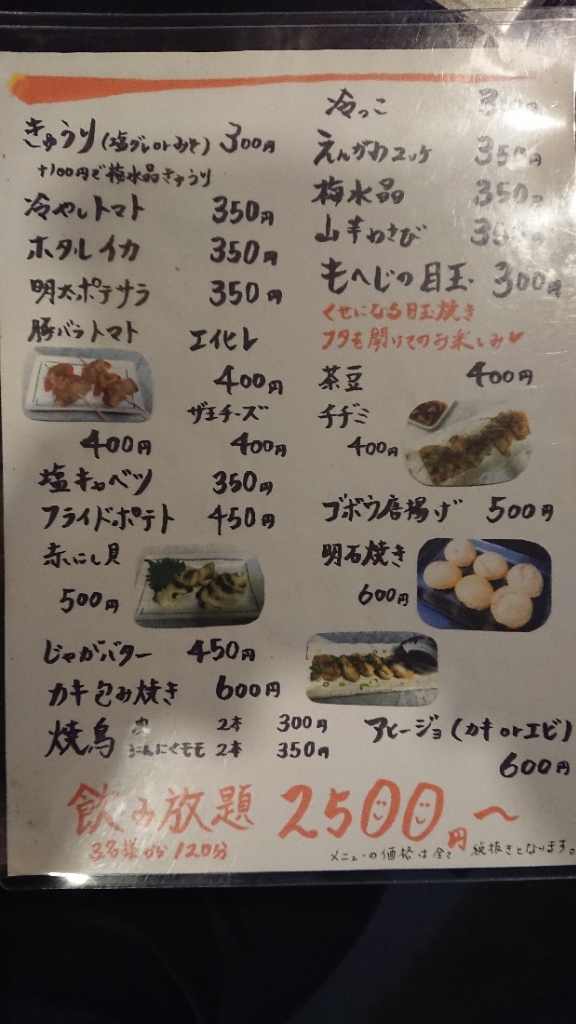 きゅうり(塩ダレorみそ) 300円
+100円で梅水晶きゅうり
冷やしトマト 350円
ホタルイカ 350円
明太ポテサラ 350円
豚バラトマト
400円
エイヒレ
400円
ザ王チーズ
400円
塩キャベツ 350円
フライドポテト 450円
赤にし貝
500円
じゃがバター 450円
カキ包み焼き 600円
焼鳥
皮 2本 300円
にんにくモモ 2本 350円
冷っこ
えんがわユッケ 350円
梅水晶 350円
山羊わさび
もへじの目玉 300円
くせになる目玉焼き
フタを開けてのお楽しみ♥
茶豆 400円
チヂミ
400円
ゴボウ唐揚げ 500円
明石焼き
600円
アヒージョ(カキorエビ)
600円
飲み放題 2500円〜
3名様から 120分
メニューの価格は全て 税抜きとなります。